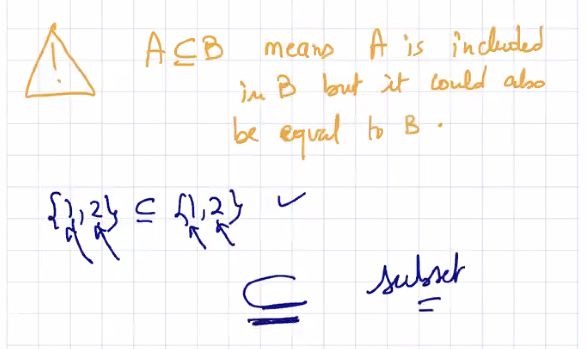 !
A ⊆ B means A is included
in B but it could also
be equal to B.
{1,2} ⊆ {1,2} ✓
⊆ subset